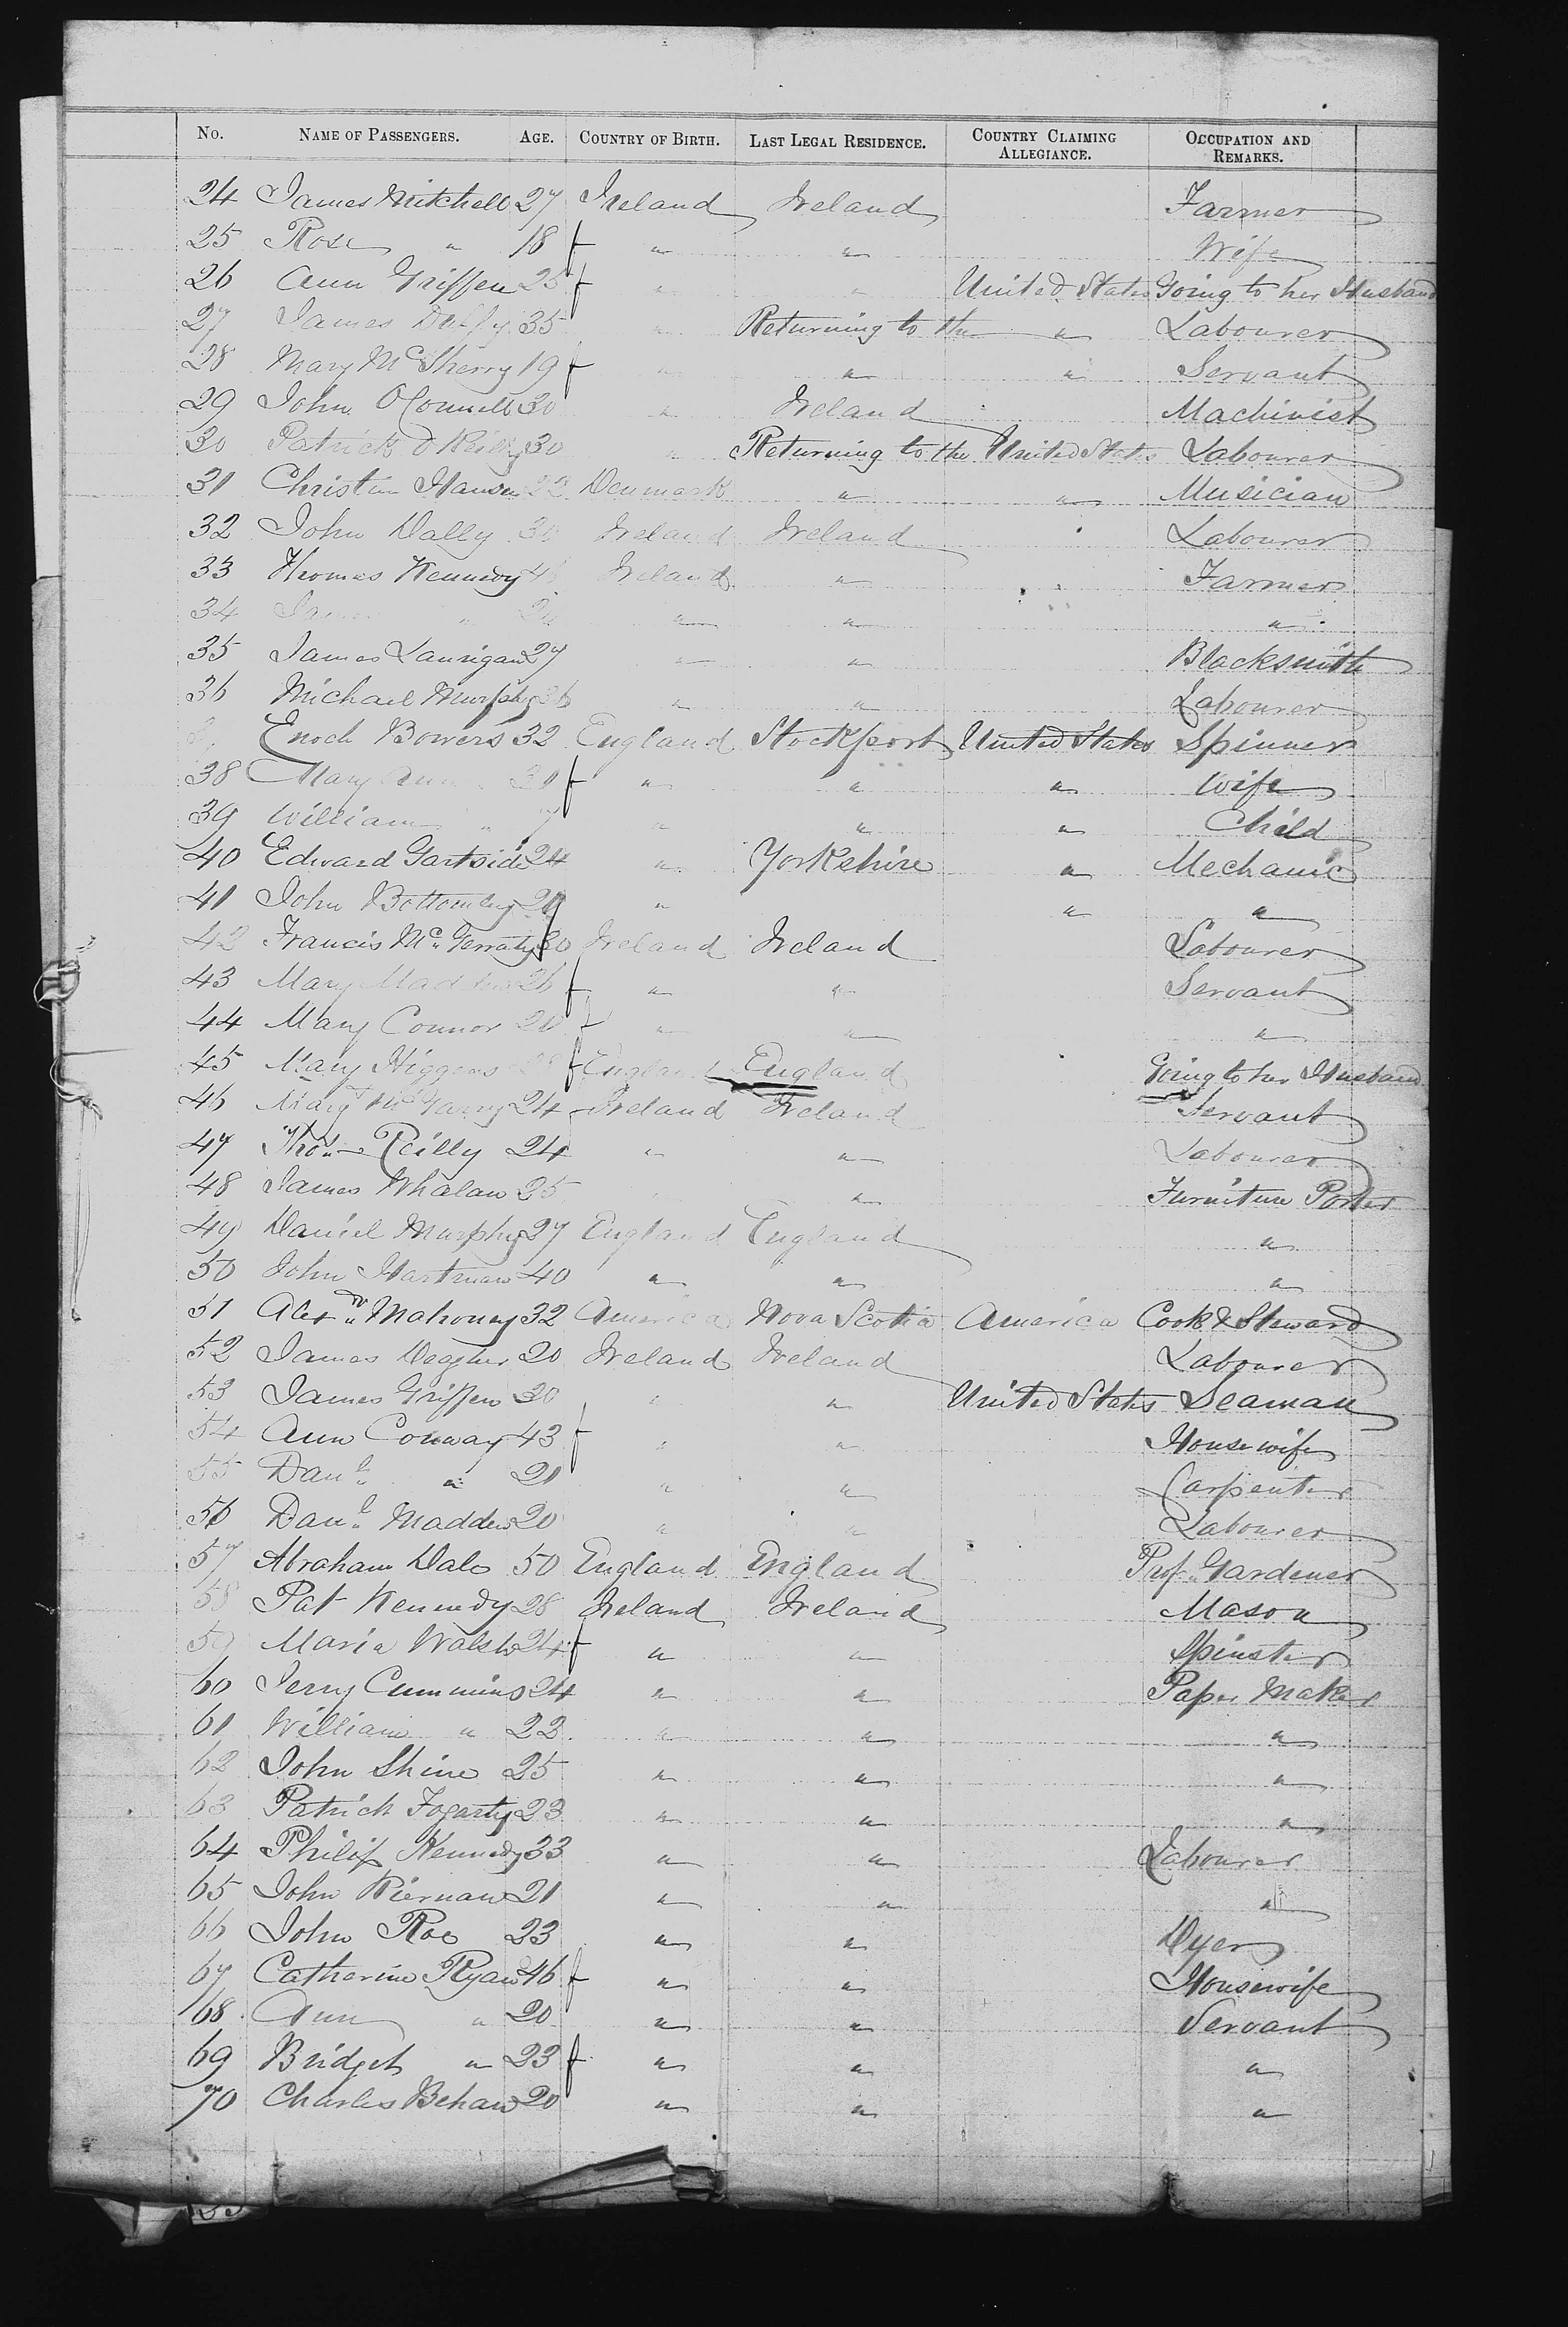 No. NAME OF PASSENGERS. AGE. COUNTRY OF BIRTH. LAST LEGAL RESIDENCE. COUNTRY CLAIMING ALLEGIANCE. OCCUPATION AND REMARKS.
24 James Mitchell 27 Ireland Ireland Farmer
25 Rose " 18 f " " Wife
26 Ann Griffen 25 f " " United States Going to her Husband
27 James Duffy 35 " Returning to the " Labourer
28 Mary McSherry 19 f " " " Servant
29 John O'Connell 30 " Ireland Machinist
30 Patrick O'Reilly 30 " Returning to the United States Labourer
31 Hansen 22 Denmark " " Musician
32 John Dally 30 Ireland Ireland Labourer
33 Thomas Kennedy Ireland " Farmer
34 " " " "
35 James Lannigan 27 " " Blacksmith
36 Michael Murphy " " Labourer
Enoch Bowers 32 England Stockport United States Spinner
38 Mary Ann f " " " Wife
39 William " 7 " " " Child
40 Edward Gartside 24 " Yorkshire " Mechanic
41 John Bottomley " " "
42 Francis Mc 30 Ireland Ireland Labourer
43 Mary Madden 26 f " " Servant
44 Mary Connor 20 f " " "
45 Mary Higgens f England England Going to her Husband
46 Mary 24 Ireland Ireland Servant
47 Thos Reilly 24 " " Labourer
48 James Whalan " Furniture Porter
49 Daniel Murphy 27 England England "
50 John Hartman 40 " " "
51 Alexdr Mahoney 32 America Nova Scotia America Cook & Steward
52 James 20 Ireland Ireland Labourer
53 James Griffen 30 " " United States Seaman
54 Ann Conway 43 f " " Housewife
55 Danl " 21 " " Carpenter
56 Danl Madden 20 " " Labourer
57 Abraham Dale 50 England England Gardener
58 Pat Kennedy 28 Ireland Ireland Mason
59 Maria Walsh 24 f " " Spinster
60 Jerry Cummins 24 " " Paper Maker
61 William " 22 " " "
62 John Shine 25 " " "
63 Patrick Fogarty 23 " " "
64 Philip Kennedy 33 " " Labourer
65 John Kiernan 21 " " "
66 John Roe 23 " " Dyer
67 Catherine Ryan 46 f " " Housewife
68 Ann " 20 " " Servant
69 Bridget " 23 f " " "
70 Charles Behan 20 " " "